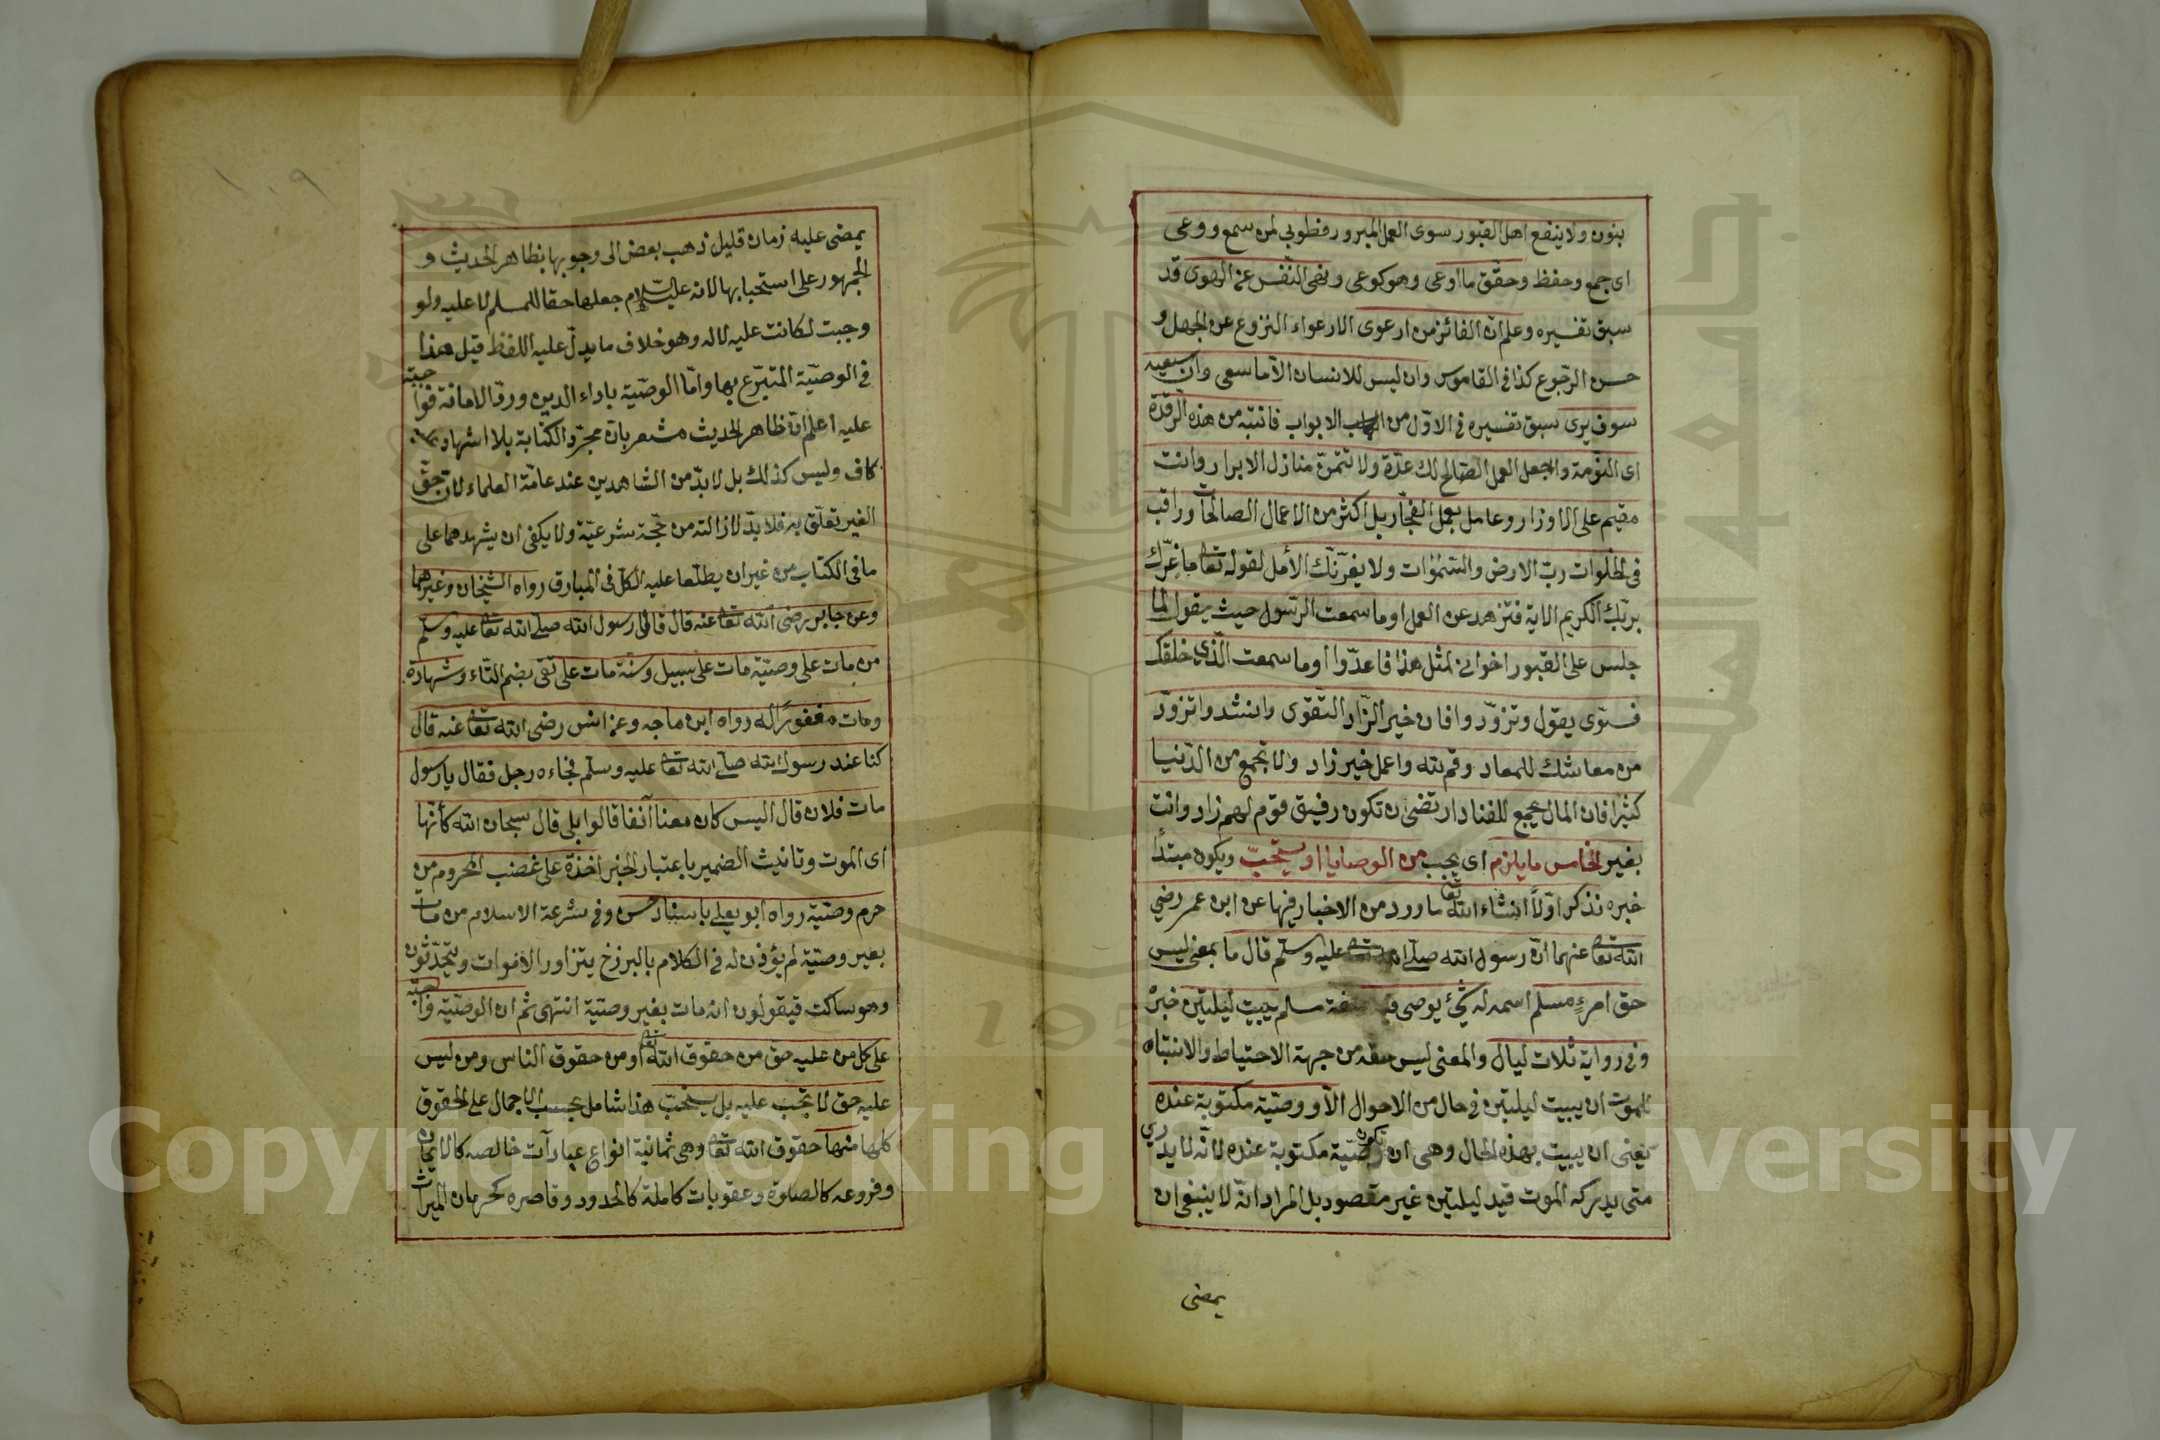 بنون ولا ينفع اهل القبور سوى العمل المبرور فطوبى لمن سمع ووعى
اى جمع وحفظ وحقّق ما اوعى وهو كوعى ونهى النّفس عن الهوى قد
سبق تفسيره وعلم انّ الفائز من ارعوى الارعواء النزوع عن الجهل و
حسن الرّجوع كذا فى القاموس وان ليس للانسان الّا ما سعى وان سعيه
سوف يرى سبق تفسيره فى الاوّل من الابواب فانتبه من هذه الرّقدة
اى النّومة واجعل العمل الصّالح لك عدّة ولا تتمنّ منازل الابرار وانت
مقيم على الاوزار وعامل بعمل الفجّار بل اكثر من الاعمال الصالحات وراقب
فى الخلوات ربّ الارض والسّمٰوات ولا يغرّنّك الأمل لقوله تعا ما غرّك
بربّك الكريم الاية فتزهد عن العمل او ما سمعت الرّسول حيث يقول لما
جلس على القبور اخوانى لمثل هذا فاعدّوا او ما سمعت الّذى خلقك
فسوّى يقول وتزوّدوا فان خير الزّاد التّقوى وانشدوا تزوّد
من معاشك للمعاد وقم لله واعمل خير زاد ولا تجمع من الدّنيا
كثيرا فان المال يجمع للنفاد ارتضى ان تكون رفيق قوم لهم زاد وانت
بغير الخامس ما يلزم اى يجب من الوصايا او يستحبّ ويكون مبتدأ
خبره نذكر اوّلًا انشاء الله تع ما ورد من الاخبار فيها عن ابن عمر رضي
الله تعا عنهما انّ رسول الله صلى الله تعا عليه وسلّم قال ما بمعنى ليس
حق امرءٍ مسلم اسمه له شئ يوصى فيه صفة مسلم يبيت ليلتين خبر
وفى رواية ثلاث ليال والمعنى ليس حقه من جهة الاحتياط والانتباه
للموت ان يبيت ليلتين فى حال من الاحوال الّا ووصيّته مكتوبة عنده
يعنى ان يبيت بهذه الحال وهى ان تكون وصيّته مكتوبة عنده لانّه لا يدرى
متى يدركه الموت قيد ليلتين غير مقصود بل المراد انّه لا ينبغى ان
يمضى
١٠٩
يمضى عليه زمان قليل ذهب بعض الى وجوبها بظاهر الحديث و
الجمهور على استحبابها لانه عليه السّلام جعلها حقا للمسلم لا عليه ولو
وجبت لكانت عليه لا له وهو خلاف ما يدلّ عليه اللفظ قيل هذا
فى الوصيّة المتبرّع بها وامّا الوصيّة باداء الدين وردّ الامانة فواجبة
عليه اعلم انّ ظاهر الحديث مشعر بانّ مجرّد الكتابة بلا اشهاد
كاف وليس كذلك بل لا بدّ من الشاهدين عند عامّة العلماء لان حقّ
الغير تعلّق به فلا بدّ لازالته من حجّة شرعيّة ولا يكفى ان يشهدهما على
ما فى الكتاب من غير ان يطلعا عليه الكلّ فى المبارق رواه الشيخان وغيرهما
وعن جابر رضى الله تعا عنه قال قال رسول الله صلى الله تعا عليه وسلّم
من مات على وصيّة مات على سبيل وسنّة مات على تقى بضم التّاء وشهادة
ومات مغفورًا له رواه ابن ماجه وعن انس رضى الله تعا عنه قال
كنا عند رسول الله صلى الله تعا عليه وسلّم فجاءه رجل فقال يا رسول
مات فلان قال اليس كان معنا آنفا قالوا بلى قال سبحان الله كأنّها
اى الموت وتانيث الضمير باعتبار الخبر اخذة على غضب المحروم من
حرم وصيّة رواه ابو يعلى باسناد حسن وفى شرعة الاسلام من مات
بغير وصيّة لم يؤذن له فى الكلام بالبرزخ يتزاور الاموات ويتحدّثون
وهو ساكت فيقولون انه مات بغير وصيّة انتهى ثم ان الوصيّة واجبة
على كل من عليه حق من حقوق الله تعا او من حقوق الناس ومن ليس
عليه حق لا تجب عليه بل يستحبّ هذا شامل بحسب الاجمال على الحقوق
كلها منها حقوق الله تعا وهى ثمانية انواع عبارات خالصه كالايمان
وفروعه كالصلوة وعقوبات كاملة كالحدود وقاصره كحرمان الميراث
Copyright © King Saud University